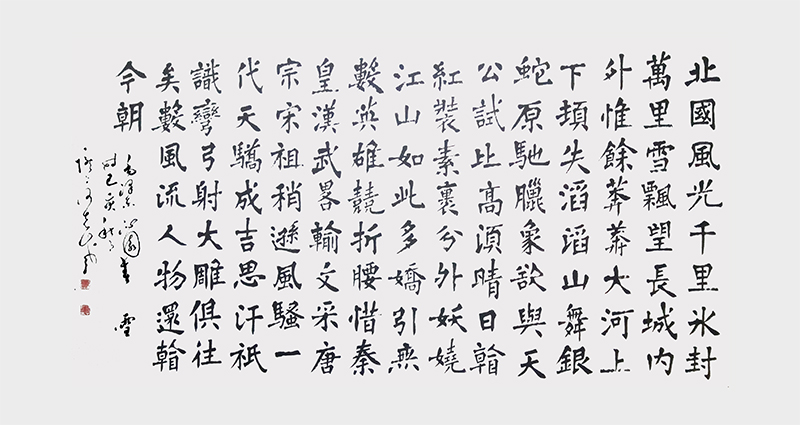 北國風光千里氷封
萬里雪飄望長城内
外惟餘莽莽大河上
下頓失滔滔山舞銀
蛇原馳臘象欲與天
公試比高須晴日看
紅裝素裹兮外妖嬈
江山如此多嬌引無
數英雄競折腰惜秦
皇漢武畧輸文采唐
宗宋祖稍遜風騷一
代天驕成吉思汗祇
識彎弓射大雕俱往
矣數風流人物還看
今朝
毛澤東沁園春 雪
時己亥秋